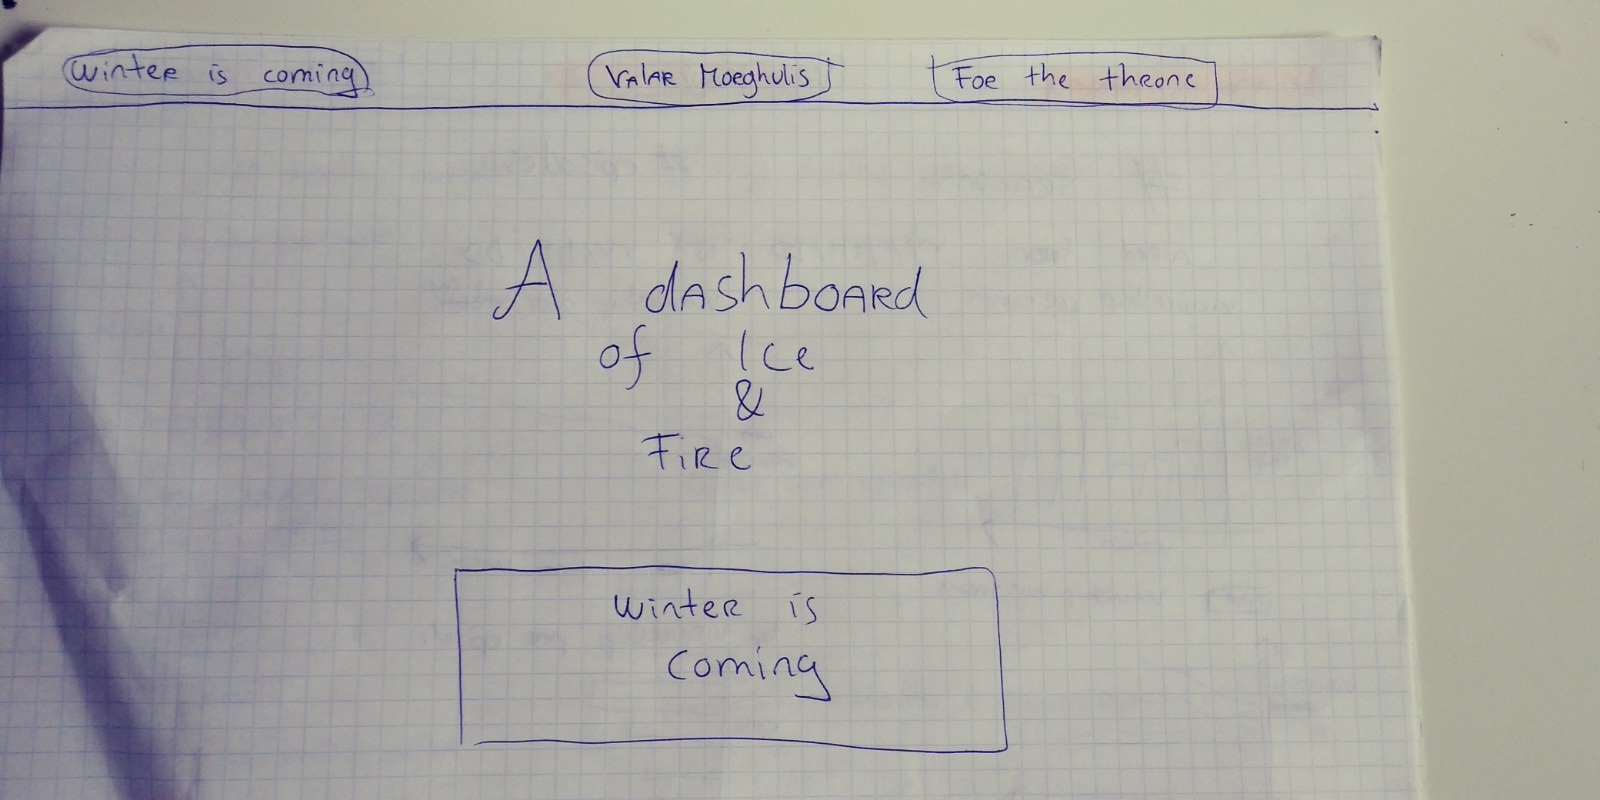 Winter is coming
Valar Morghulis
For the throne
A dashboard
of Ice
&
Fire
Winter is
Coming